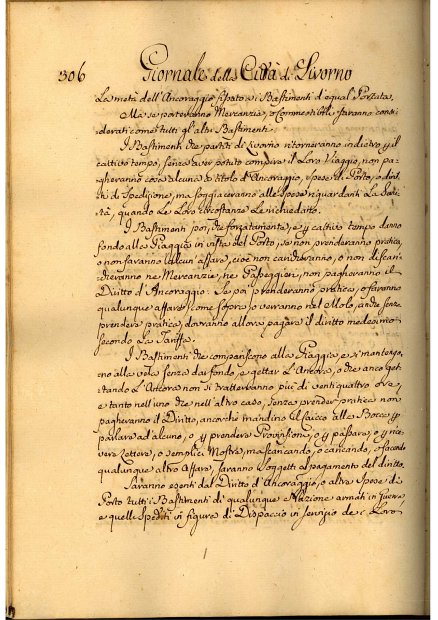 306 Giornale della Città di Livorno
La metà dell'Ancoraggio fissato ai Bastimenti d'equal Portata.
Ma se porteranno Mercanzie, o Commestibili saranno consi-
derati come tutti gl'altri Bastimenti.
I Bastimenti che partiti di Livorno ritorneranno indietro p il
cattivo tempo, senza aver potuto compire il Loro Viaggio, non pa-
gheranno cosa alcuna a titolo d'Ancoraggio, spese di Porto, o drit-
ti di Spedizione, ma soggiaceranno alle Spese riguardanti La Sani-
tà, quando le Loro circostanze Le richiedino.
I Bastimenti poi, che forzatamente, e p cattivo tempo danno
fondo alla Piaggia in vista del Porto, se non prenderanno pratica,
o non faranno alcun'affare, cioè non caricheranno, o non discari-
cheranno nè Mercanzie, nè Passeggieri, non pagheranno il
Diritto d'Ancoraggio: Se poi prenderanno pratica, o faranno
qualunque affare come sopra, o verranno nel Molo, anche senza
prendere pratica, dovranno allora pagare il diritto medesimo
secondo La Tariffa.
I Bastimenti che compariscono alla Piaggia e si mantengo-
no alla vela senza dar fondo, e gettar L'Ancora, o che anco get-
tando L'Ancora non si tratterranno più di ventiquattro ore,
e tanto nell'uno che nell'altro caso, senza prender pratica non
pagheranno il Diritto, ancorchè mandino il Caicco alla Bocca p
parlare ad alcuno, o p prendere Provisioni, o p passare, o p rice-
vere Lettere, o semplici Mostre, ma scaricando, o caricando, o facendo
qualunque altro affare, saranno soggetti al pagamento del diritto.
Saranno esenti dal Diritto d'Ancoraggio, o altre Spese di
Porto tutti i Bastimenti di qualunque Nazione armati in Guerra
e quelli Spediti in figura di Dispaccio in servizio de i Loro